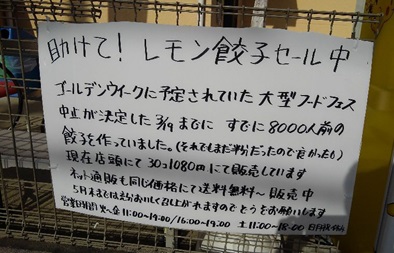 助けて! レモン餃子セール中
ゴールデンウイークに予定されていた 大型フードフェス
中止が決定した 3/9までに すでに8000人前の
餃子を作っていました。(それでもまだ半分だったので良かったも)
現在店頭にて 30コ1080円にて販売しています
ネット通販も同じ価格にて送料無料~ 販売中
5月末までは おいしく召し上がれますのでどうぞお願いします
営業時間 火~金 11:00~14:00/16:00~19:00 土 11:00~18:00 日月祝休み